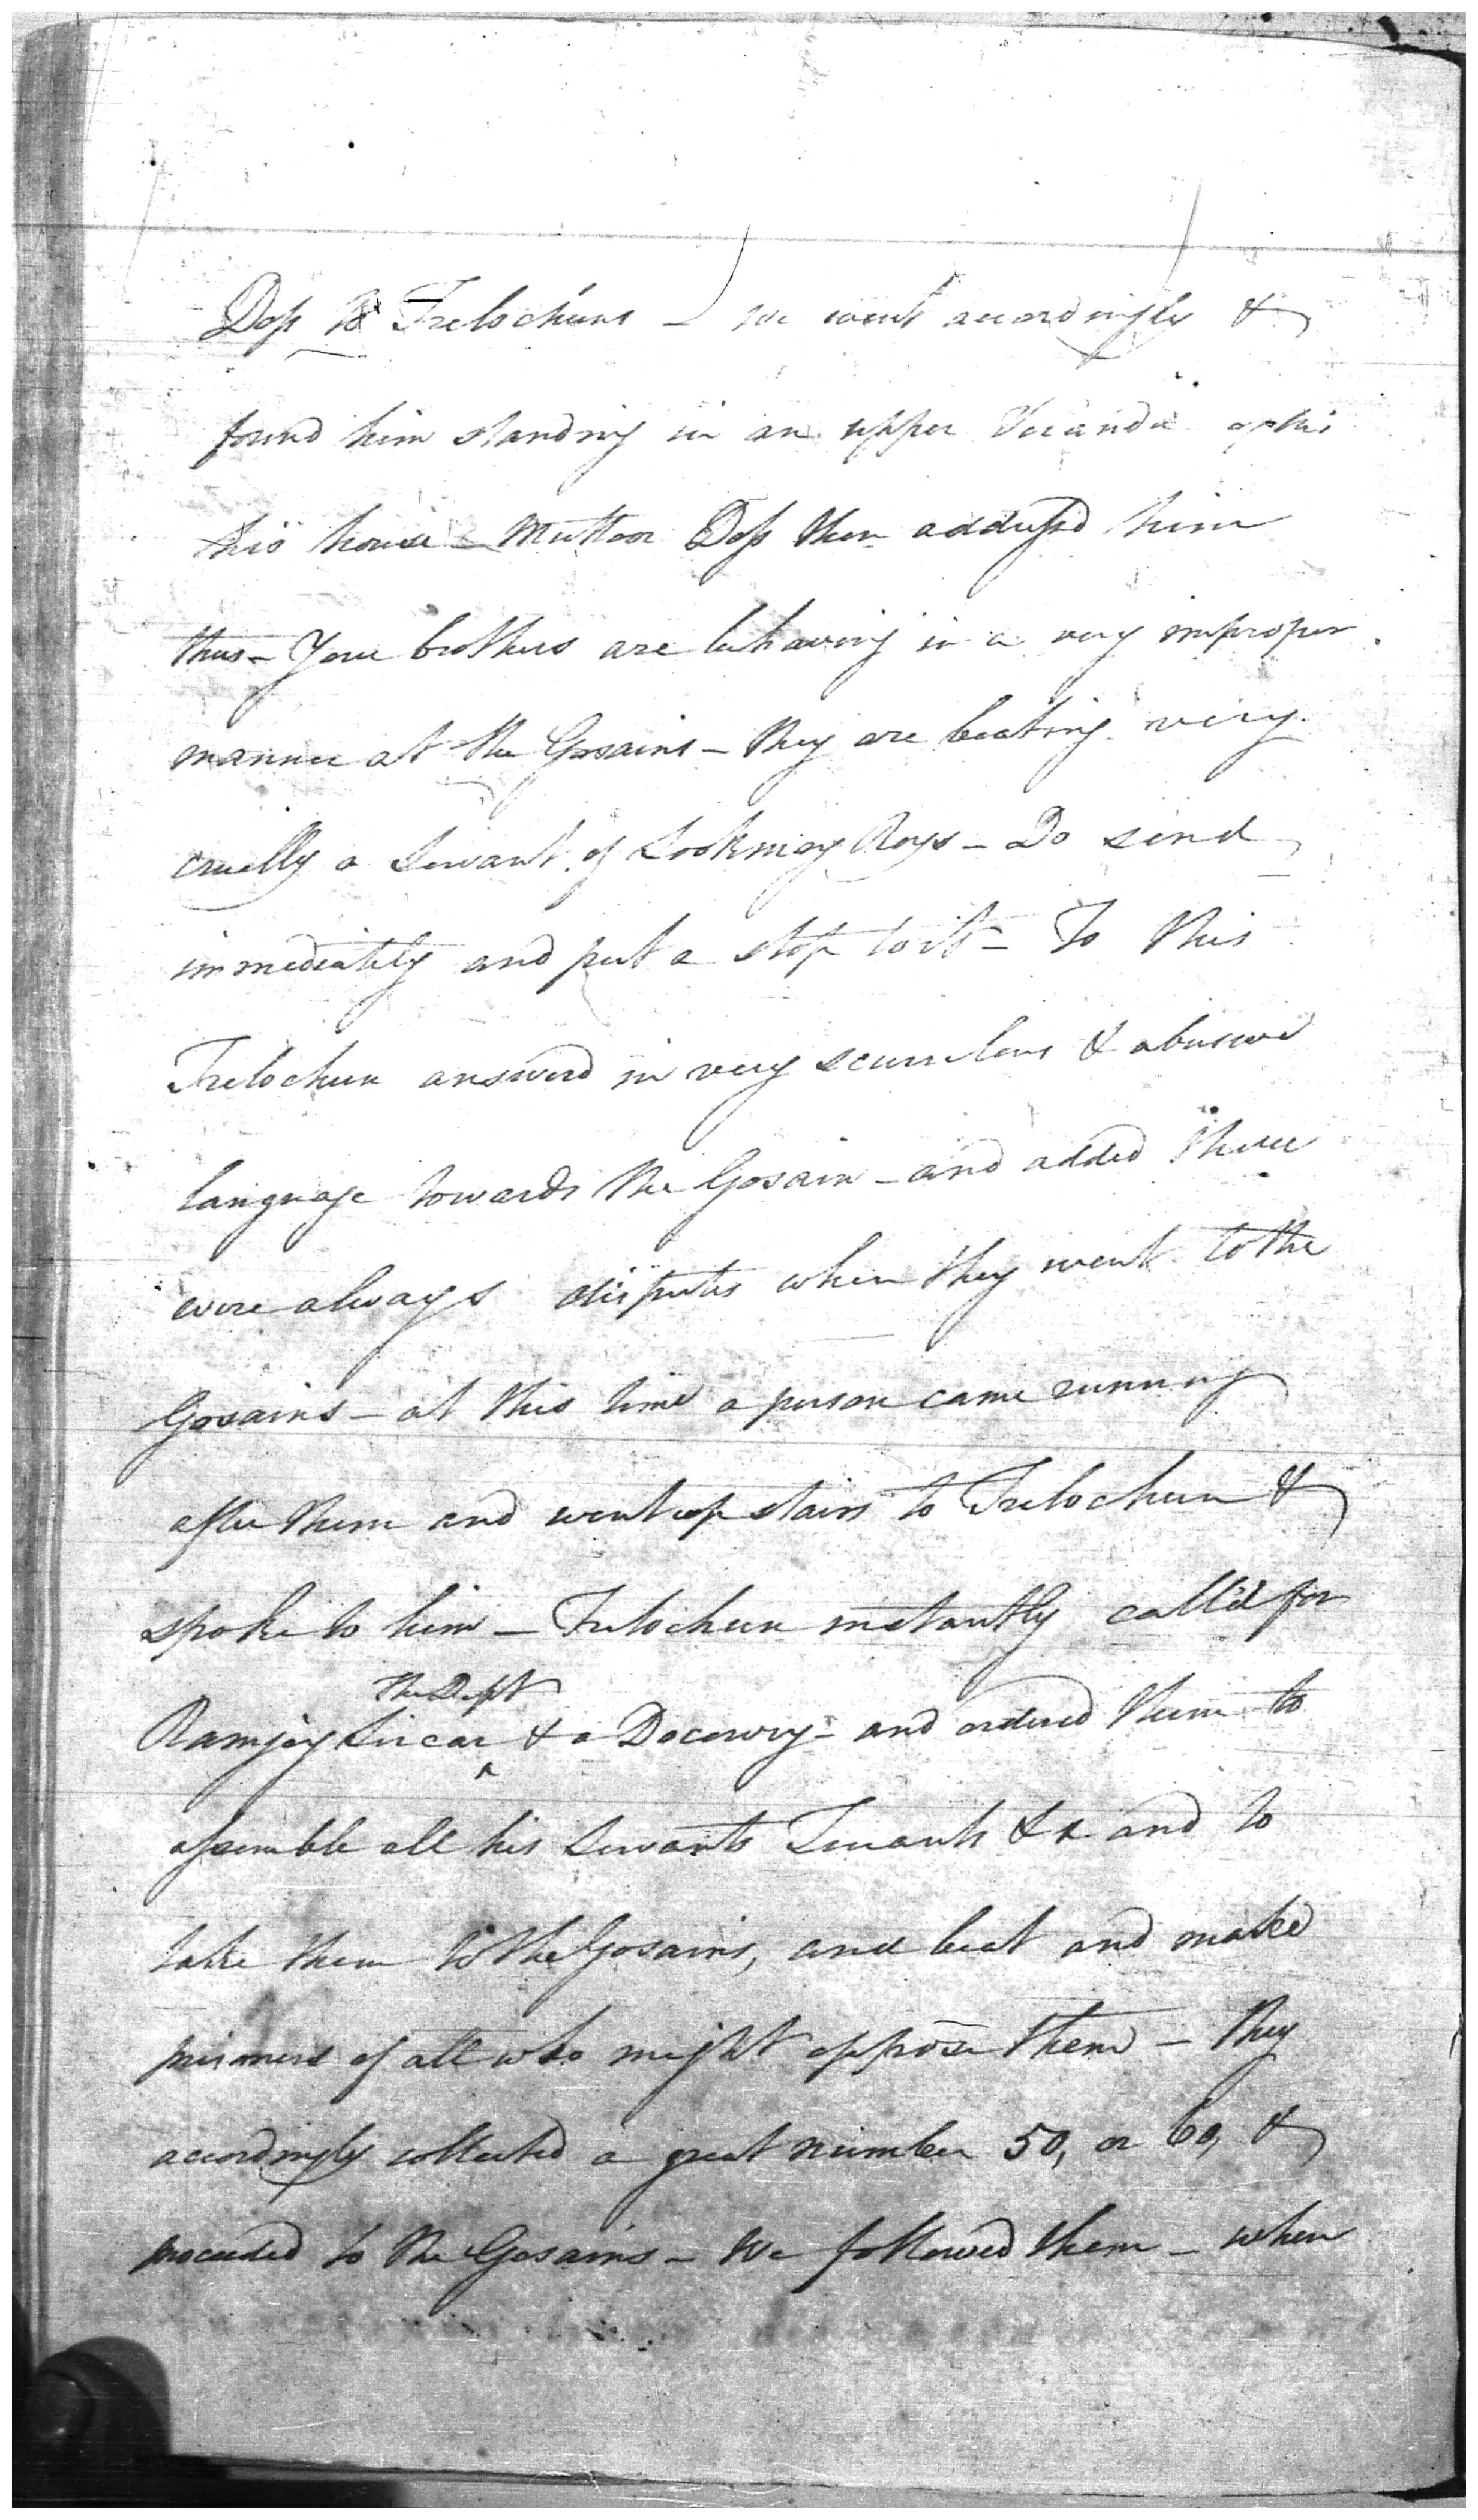 Doss to Trelochuns - we went accordingly &
found him standing in an upper Veranda of his
his house - Muttoor Doss then address'd him
thus - Your brothers are behaving in a very improper
manner at the Gosains - they are beating very
cruelly a Servant of Lookmoy Roys - Do send
immediately and put a stop to it - To this
Trelochun answerd in very scurrilous & abusive
language towards the Gosain - and added there
were always disputes when they went to the
Gosains - at this time a person came running
after them and went up stairs to Trelochun &
spoke to him - Trelochun instantly call'd for
the Deft
Ramjoy Sircar & a Docowry - and ordered them to
assemble all his Servants Tenants &c and to
take them to the Gosains, and beat and make
prisoners of all who might oppose them - They
accordingly collected a great number 50, or 60, &
proceeded to the Gosains - We followed them - when